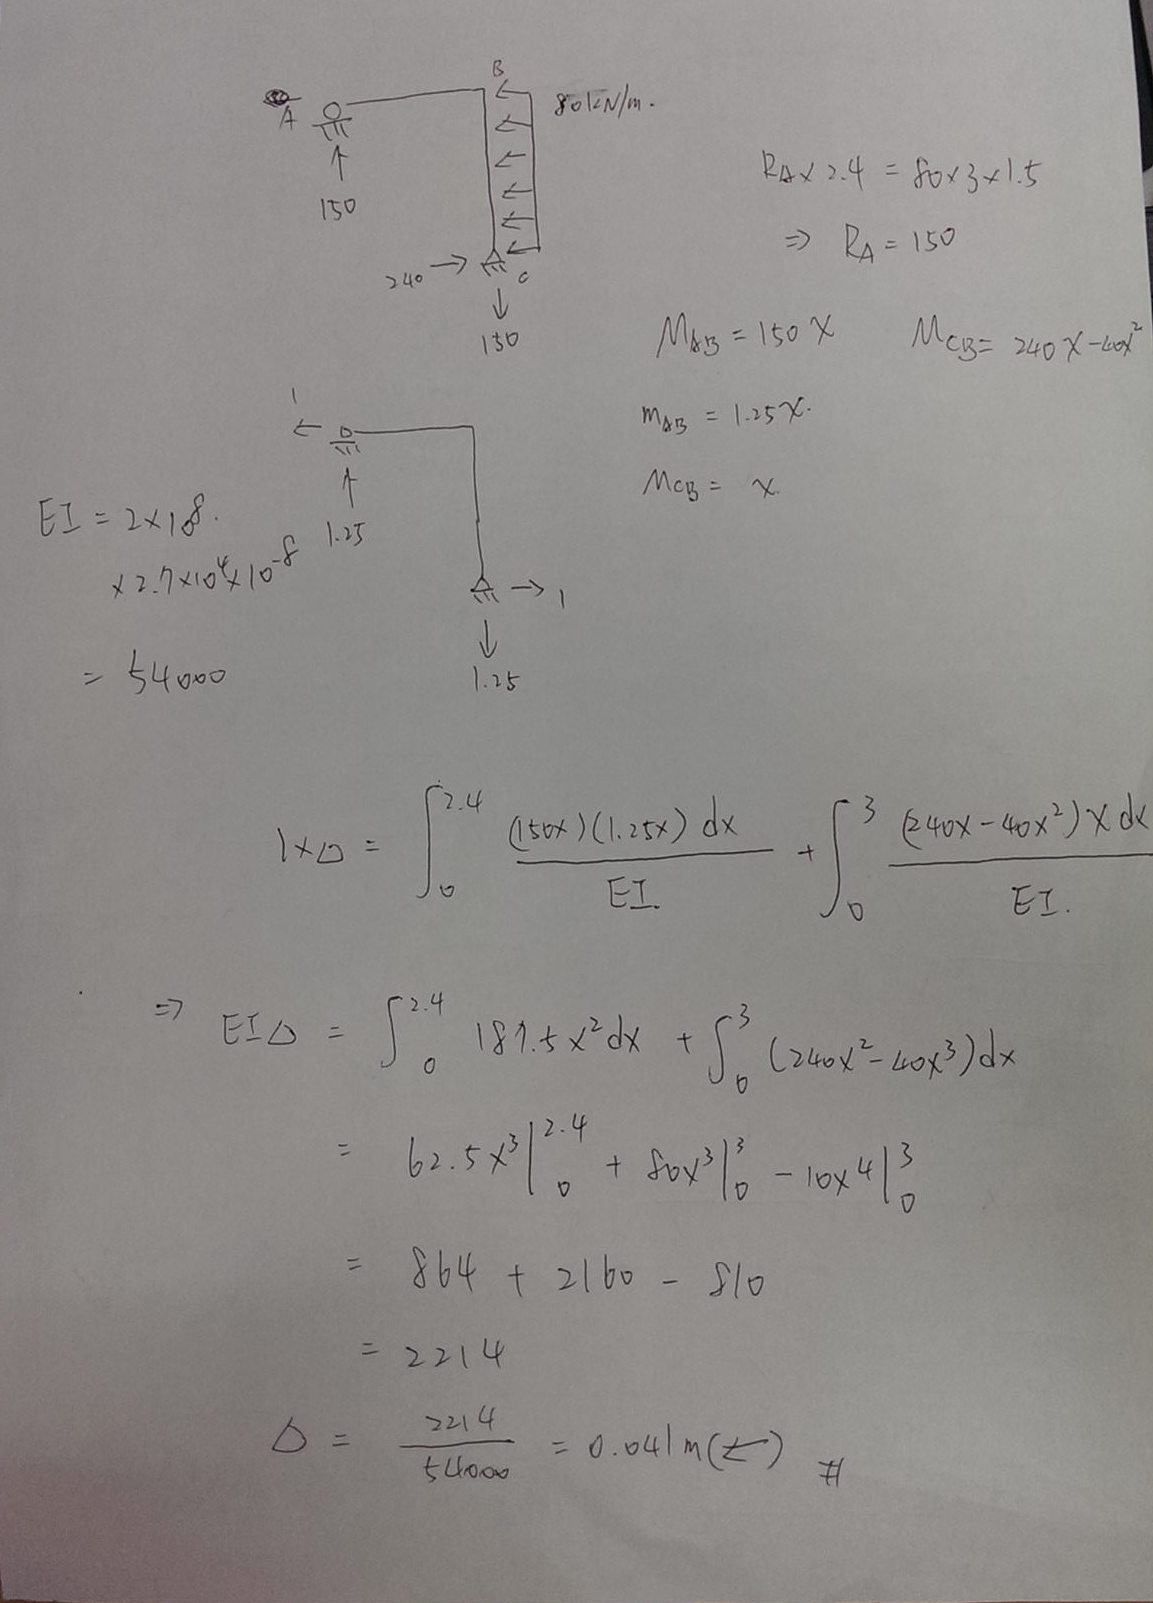 B
80kN/m.
A
150
240
C
150
RA × 2.4 = 80×3×1.5
⇒ RA = 150
MAB = 150x MCB = 240x-40x²
mAB = 1.25x.
mCB = x.
1
1.25
1
1.25
EI = 2×10⁸.
×2.7×10⁴×10⁻⁸
= 54000
1×Δ = ∫₀^2.4 (150x)(1.25x)dx / EI. + ∫₀^3 (240x-40x²)x dx / EI.
⇒ EIΔ = ∫₀^2.4 187.5x²dx + ∫₀^3 (240x²-40x³)dx
= 62.5x³|₀^2.4 + 80x³|₀^3 - 10x⁴|₀^3
= 864 + 2160 - 810
= 2214
Δ = 2214 / 54000 = 0.041m(←) #